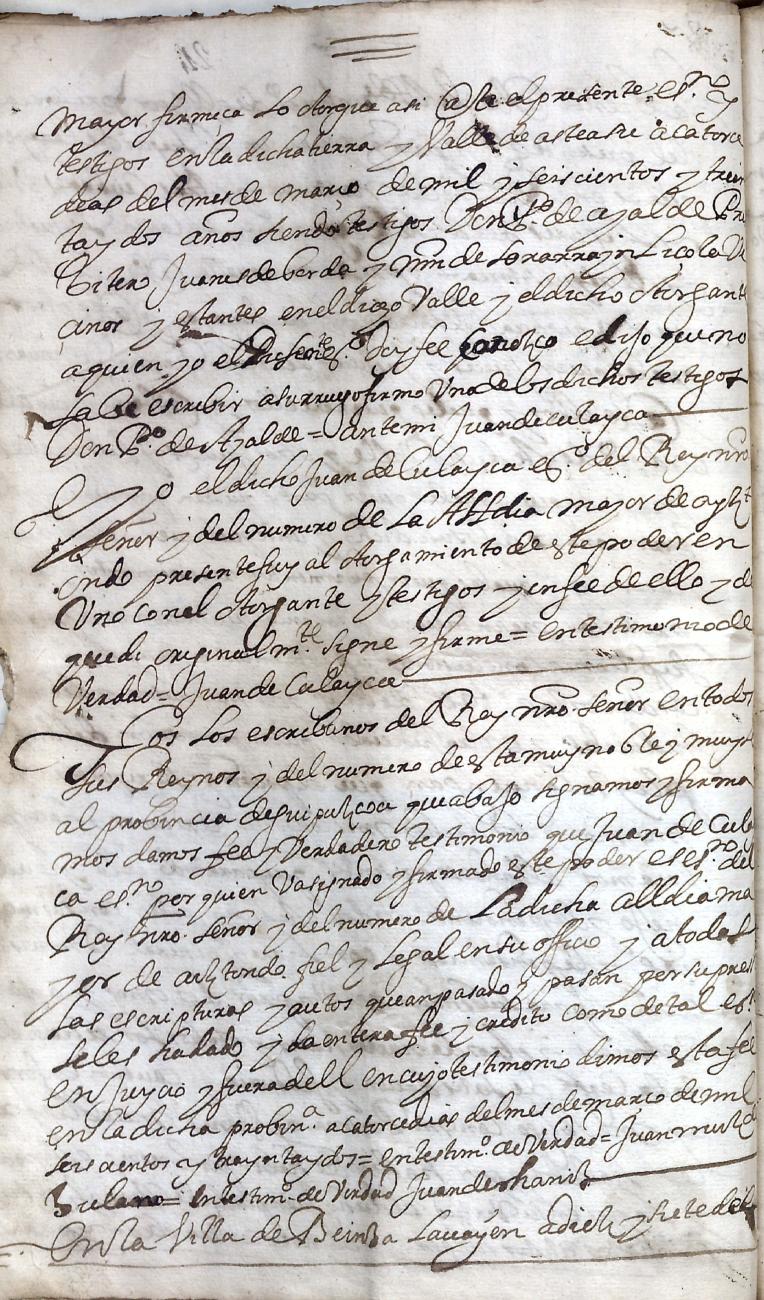 mayor firmeça lo otorgue asi ante el presente es.no y
testigos en la dicha tierra y Valle de asteasu a catorce
dias del mes de março de mil y seis cientos y trein
ta y dos años siendo testigos Don P.o de ayalde Pres
bitero Juanes de y mrn de Ve
cinos y estantes en el dicho Valle y el dicho otorgante
a quien yo el presente es.no doy fee conozco e dijo que no
sabe escribir a su ruego firmo Uno de los dichos testigos
Don P.o de Ayalde = ante mi Juan de Culayca
Yo el dicho Juan de Culayca es.no del Rey nro
señor y del numero de la Alldia mayor de ayzt
ondo presente fuy al otorgamiento de este poder en
Uno con el otorgante y testigos y en fee de ello y de
quedi original m.te signe y firme = en testimonio de
Verdad = Juan de Culayca
Nos los escribanos del Rey nro señor en todos
sus Reynos y del numero de esta muy noble y muy le
al probincia de guipuzcoa que abajo signamos y firma
mos damos fee y Verdadero testimonio que Juan de Culay
ca es.no por quien Va signado y firmado este poder es es.no del
Rey nro señor y del numero de La dicha alldia ma
yor de aiztondo fiel y legal en su officio y a todas
las escripturas y autos que an pasado y pasan por su pres.a
se les ha dado y da entera fee y credito como de tal es.no
en Juycio y fuera dell en cuyo testimonio dimos esta fee
en la dicha probin.a a catorce dias del mes de março de mil
seis cientos y treynta y dos = en testim.o de Verdad = Juan
= en testim.o de Verdad Juan de
En la Villa de Beinza Lavayen a diez y siete del